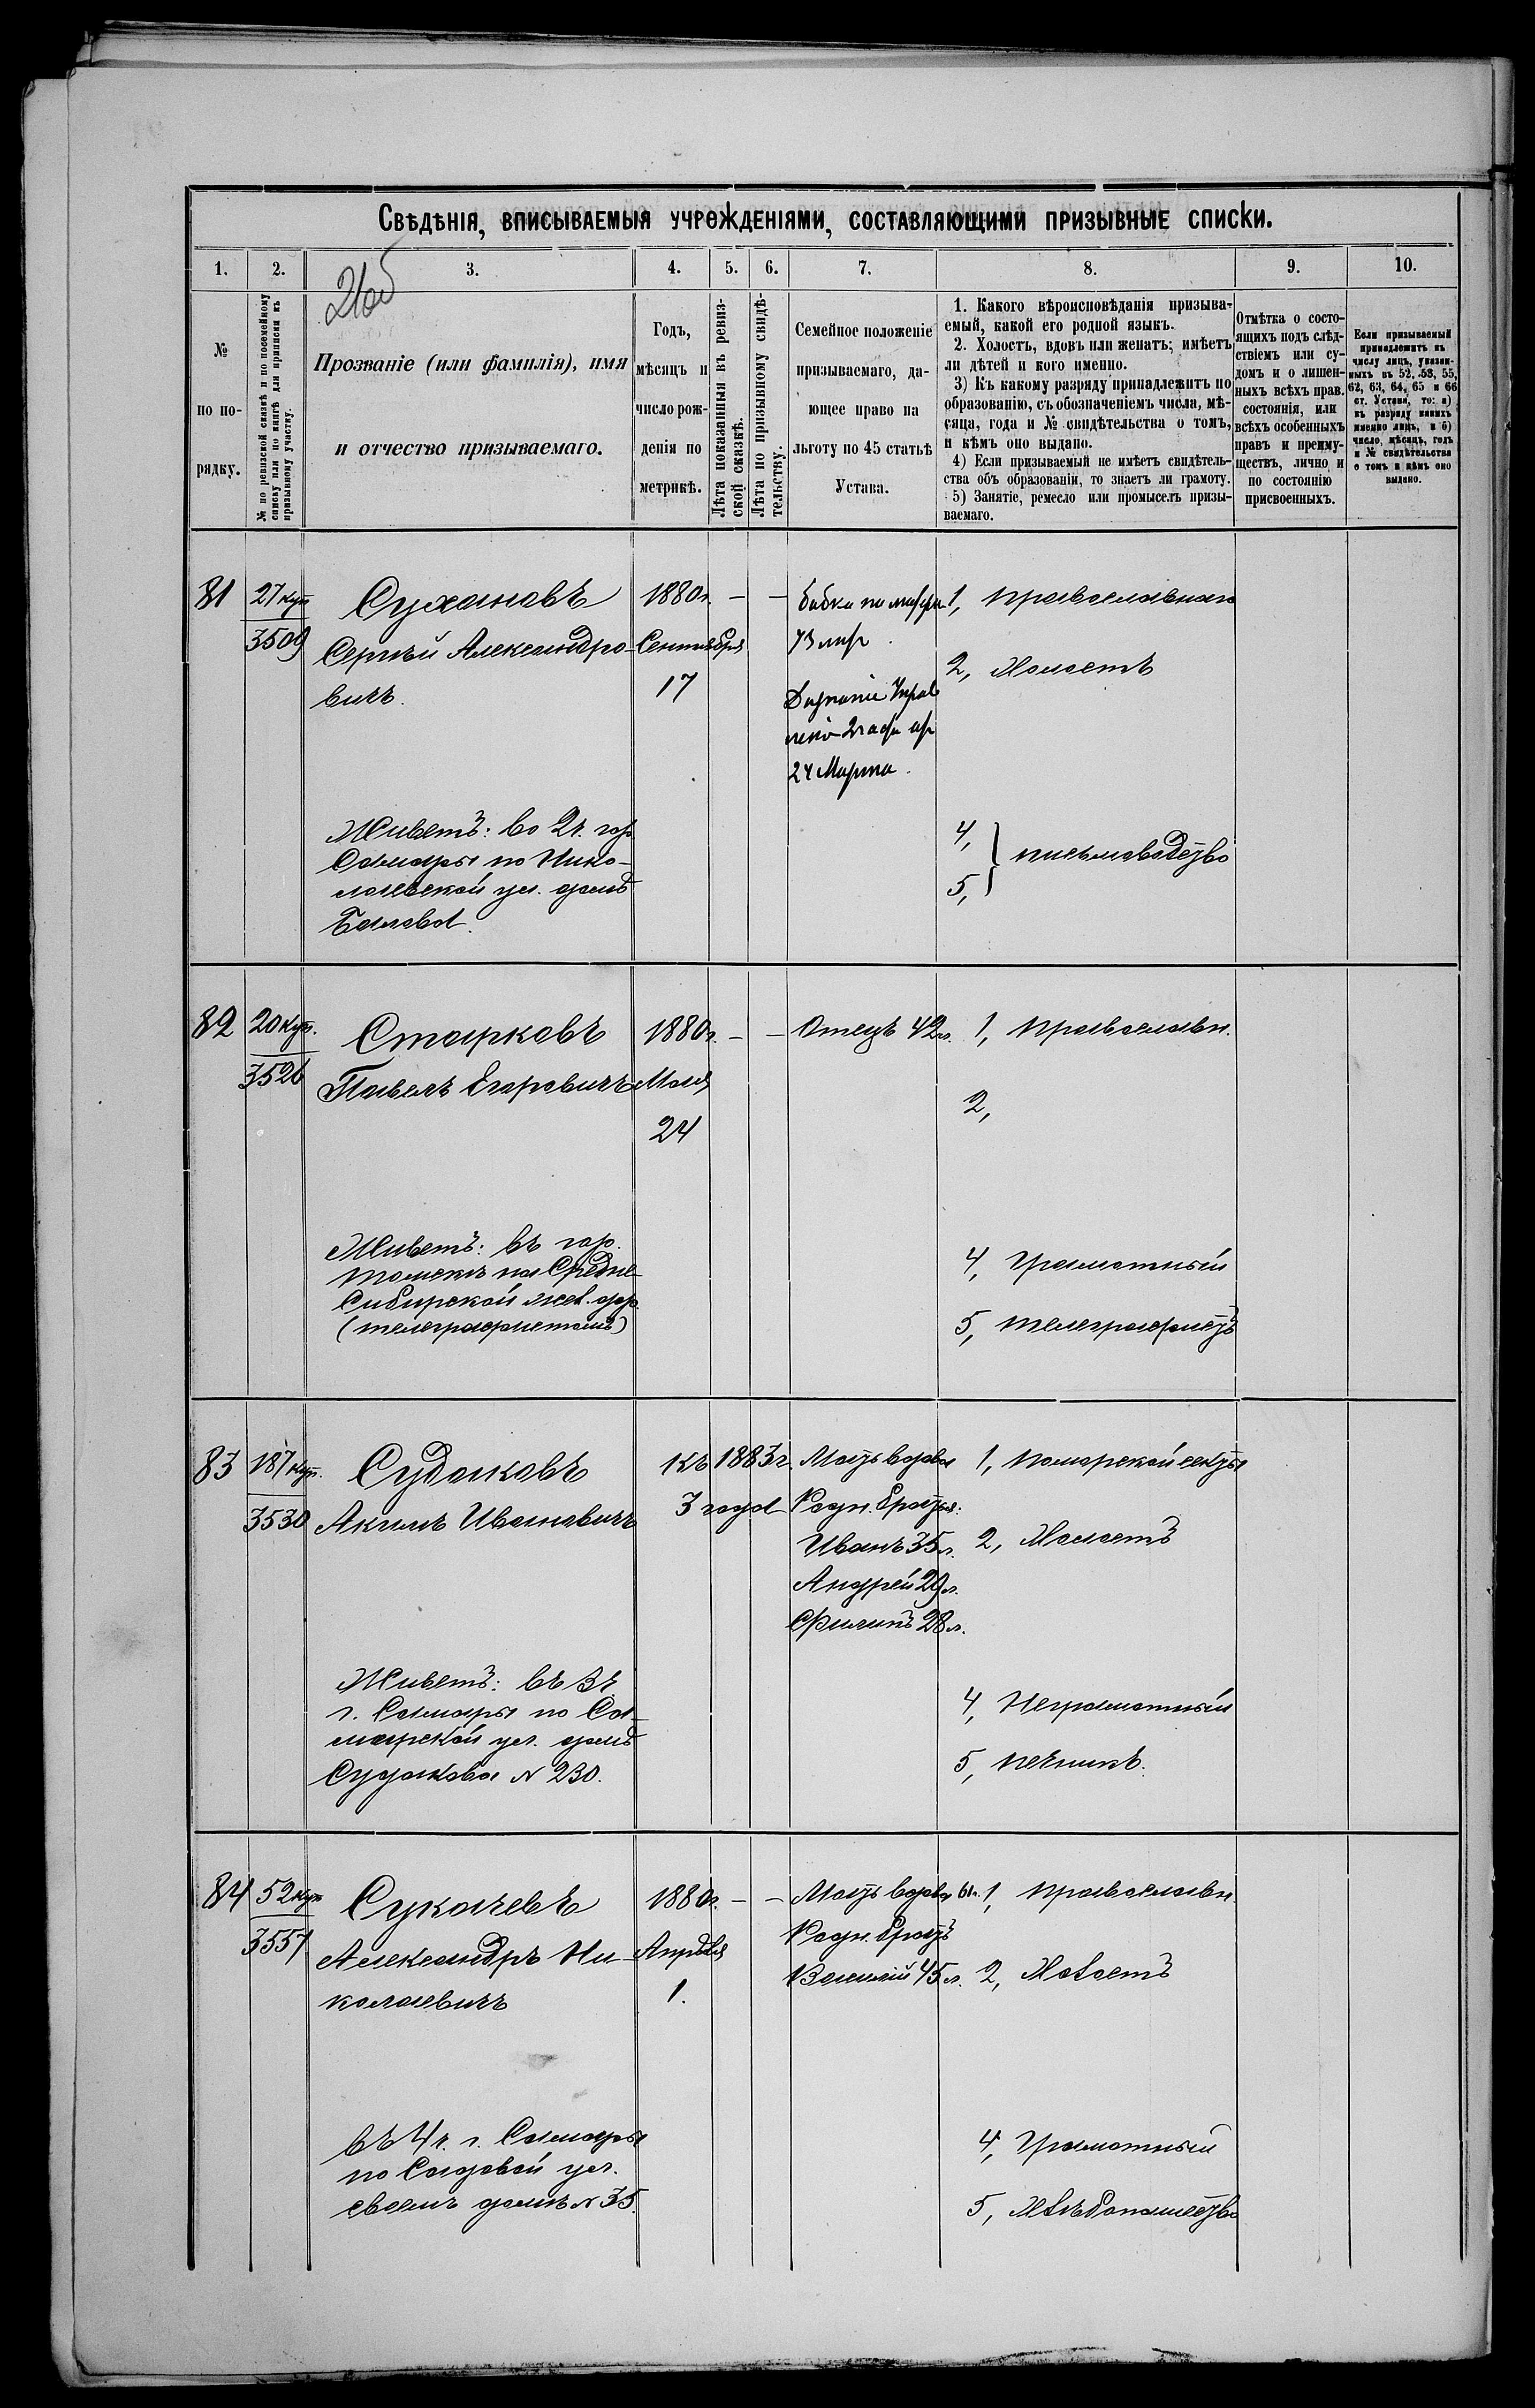 Свѣдѣнія, вписываемыя учрежденіями, составляющими призывные списки.
1. 2. 3. 4. 5. 6. 7. 8. 9. 10.
№
по по-
рядку.
№ по ревизской сказкѣ и по посемейному
списку или по книгѣ для приписки къ
призывному участку.
26об
Прозваніе (или фамилія), имя
и отчество призываемаго.
Годъ,
мѣсяцъ и
число рож-
денія по
метрикѣ.
Лѣта показанныя въ ревиз-
ской сказкѣ.
Лѣта по призывному свидѣ-
тельству.
Семейное положеніе
призываемаго, да-
ющее право на
льготу по 45 статьѣ
Устава.
1. Какого вѣроисповѣданія призыва-
емый, какой его родной языкъ.
2. Холостъ, вдовъ или женатъ; имѣетъ
ли дѣтей и кого именно.
3) Къ какому разряду принадлежитъ по
образованію, съ обозначеніемъ числа, мѣ-
сяца, года и № свидѣтельства о томъ,
и кѣмъ оно выдано.
4) Если призываемый не имѣетъ свидѣтель-
ства объ образованіи, то знаетъ ли грамоту.
5) Занятіе, ремесло или промыселъ призы-
ваемаго.
Отмѣтка о состо-
ящихъ подъ слѣд-
ствіемъ или су-
домъ и о лишен-
ныхъ всѣхъ прав.
состоянія, или
всѣхъ особенныхъ
правъ и преиму-
ществъ, лично и
по состоянію
присвоенныхъ.
Если призываемый
принадлежитъ къ
числу лицъ, указан-
ныхъ въ 52, 53, 55,
62, 63, 64, 65 и 66
ст. Устава, то: а)
къ разряду какихъ
именно лицъ, и б)
число, мѣсяцъ, годъ
и № свидѣтельства
о томъ и кѣмъ оно
выдано.
81
27 куп
3509
Сухановъ
Сергѣй Александро-
вичъ.
1880г.
Сентября
17
— —
бабка по матери
73 лѣт
Дознаніе
2 части от
24 Марта.
1, православнаго
2, Холостъ
Живетъ: во 2ч. гор.
Самары по Нико-
лаевской ул. домъ
Балова.
4,
5, } письмоводство
82
20 куп.
3526
Старковъ
Павелъ Егоровичъ
1880г.
Мая
24
— —
Отецъ 42л.
1, православн.
2,
Живетъ: въ гор.
Томскѣ на Средне-
Сибирской жел. дор.
(телеграфистомъ)
4, Грамотный
5, телеграфистъ
83
187 куп.
3530
Судаковъ
Акимъ Ивановичъ
Къ 1883г.
3 года
Мать вдова
Родн. братья:
Иванъ 35л.
Андрей 29л.
Филипъ 28л.
1, поморской секты
2, Холостъ
Живетъ: въ 3ч
г. Самары по Са-
марской ул. домъ
Судакова № 230.
4, Неграмотный
5, печникъ.
84
52 куп
3557
Сукачевъ
Александръ Ни-
колаевичъ
1880г.
Апрѣля
1.
— —
Мать вдова 61л.
Родн. братъ
Василій 45л.
1, православн.
2, Холостъ
въ 4ч. г. Самары
по Садовой ул.
своемъ домѣ № 35.
4, Грамотный
5, Хлѣбопашество